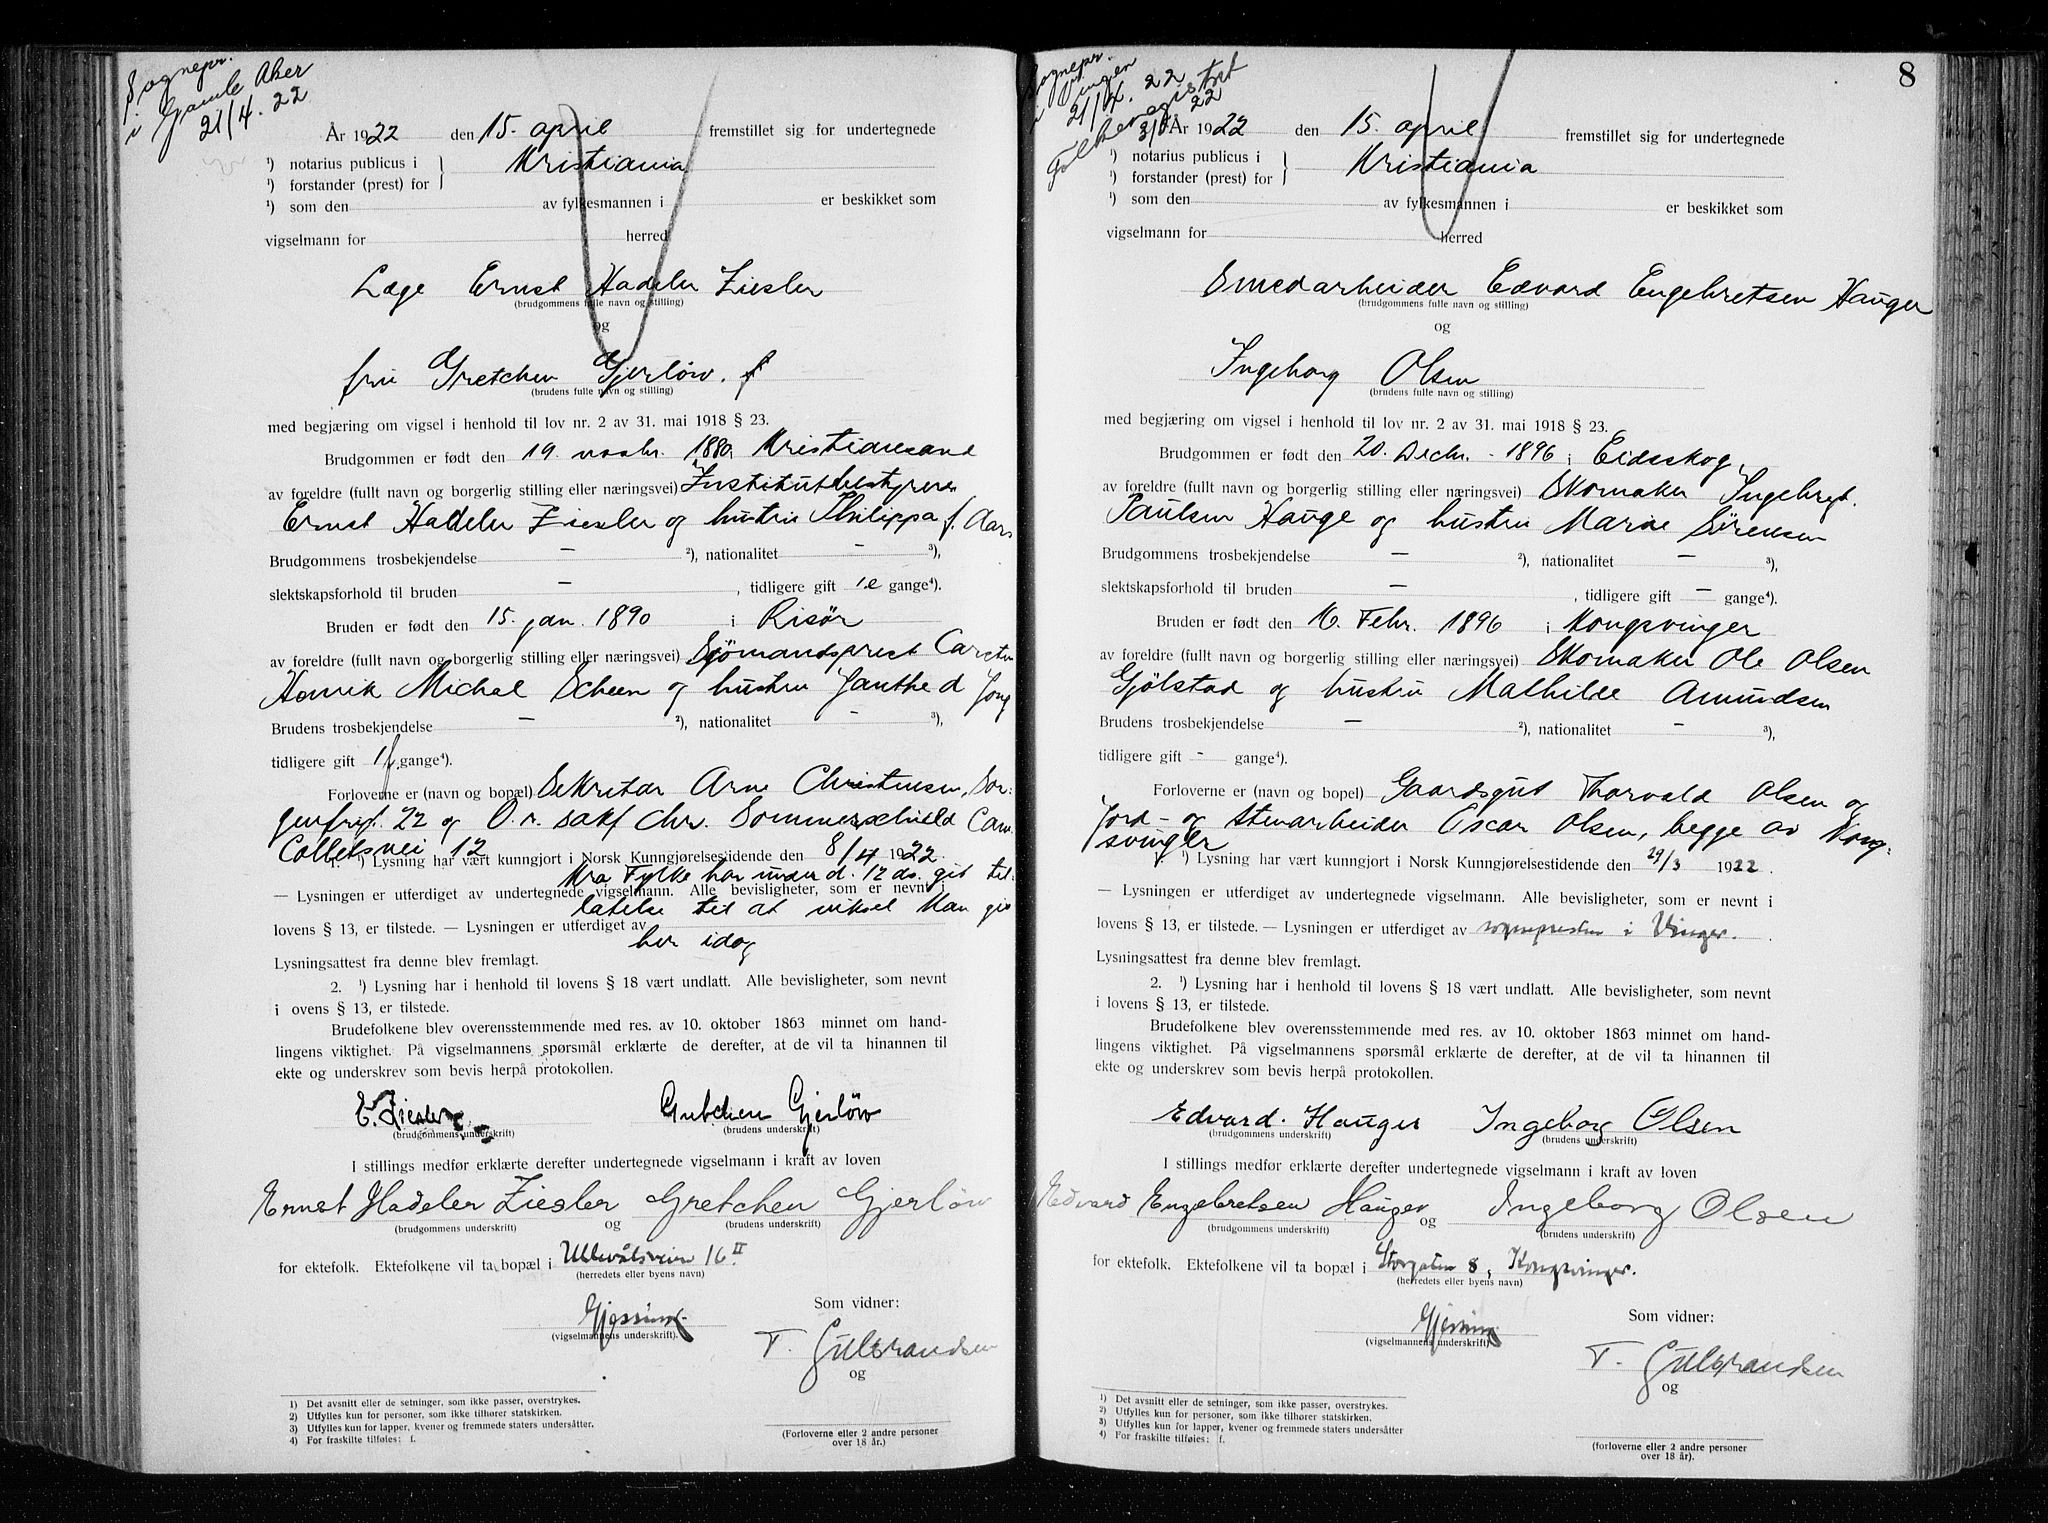 Sognepr.
i Gamle Aker
21/4. 22
År 1922 den 15. april fremstillet sig for undertegnede
¹) notarius publicus i
Kristiania
¹) forstander (prest) for
¹) som den av fylkesmannen i er beskikket som
vigselmann for herred
Læge Ernst Hadeler Ziesler
(brudgommens fulle navn og stilling)
og
fru Gretchen Gjerløw. f
(brudens fulle navn og stilling)
med begjæring om vigsel i henhold til lov nr. 2 av 31. mai 1918 § 23.
Brudgommen er født den 19. novbr. 1880 Kristiansand
av foreldre (fullt navn og borgerlig stilling eller næringsvei) Institutbestyrer
Ernst Hadeler Ziesler og hustru Philippa f. Aars
Brudgommens trosbekjendelse — ²), nationalitet — ³),
slektskapsforhold til bruden — , tidligere gift 1.e gange⁴).
Bruden er født den 15. jan. 1890 i Risør
av foreldre (fullt navn og borgerlig stilling eller næringsvei) Sjömandsprest Carsten
Henrik Michal Scheen og hustru Janthe d Jong
Brudens trosbekjendelse — ²), nationalitet — ³),
tidligere gift 1 f. gange⁴).
Forloverne er (navn og bopæl) Sekretær Arne Christensen, Sor-
genfrigt. 22 og O.r. sakf Chr. Sommerschield Cam.
Colletsvei 12
1. ¹) Lysning har vært kunngjort i Norsk Kunngjørelsestidende den 8/4 1922
Kra Fylke har under d. 12 ds. git til-
— Lysningen er utferdiget av undertegnede vigselmann. Alle bevisligheter, som er nevnt i
latelse til at viksel kan gis
lovens § 13, er tilstede. — Lysningen er utferdiget av
her idag
Lysningsattest fra denne blev fremlagt.
2. ¹) Lysning har i henhold til lovens § 18 vært undlatt. Alle bevisligheter, som nevnt
i ovens § 13, er tilstede.
Brudefolkene blev overensstemmende med res. av 10. oktober 1863 minnet om hand-
lingens viktighet. På vigselmannens spørsmål erklærte de derefter, at de vil ta hinannen til
ekte og underskrev som bevis herpå protokollen.
E. Ziesler Gretchen Gjerløw
(brudgommens underskrift) (brudens underskrift)
I stillings medfør erklærte derefter undertegnede vigselmann i kraft av loven
Ernst Hadeler Ziesler og Gretchen Gjerløw
(brudgommens underskrift) (brudens underskrift)
for ektefolk. Ektefolkene vil ta bopæl i Ullevålsveien 16 II
(herredets eller byens navn)
Gjessing
(vigselmannens underskrift).
Som vidner:
T. Gulbrandsen
og
¹) Det avsnitt eller de setninger, som ikke passer, overstrykes.
²) Utfylles kun for personer, som ikke tilhører statskirken.
³) Utfylles kun for lapper, kvener og fremmede staters undersåtter.
⁴) For fraskilte tilføies: f.
(Forloverne eller 2 andre personer
over 18 år.)
8
Sognepr.
i Vinger
21/4. 22
Folkeregistret
22
År 1922 den 15. april fremstillet sig for undertegnede
¹) notarius publicus i
Kristiania
¹) forstander (prest) for
¹) som den av fylkesmannen i er beskikket som
vigselmann for herred
Smedarbeider Edvard Engebretsen Hauger
(brudgommens fulle navn og stilling)
og
Ingeborg Olsen
(brudens fulle navn og stilling)
med begjæring om vigsel i henhold til lov nr. 2 av 31. mai 1918 § 23.
Brudgommen er født den 20. Decbr. - 1896 i Eidsskog
av foreldre (fullt navn og borgerlig stilling eller næringsvei) Skomaker Ingebrigt.
Paulsen Hauge og hustru Marie Sørensen
Brudgommens trosbekjendelse — ²), nationalitet — ³),
slektskapsforhold til bruden — , tidligere gift — gange⁴).
Bruden er født den 16. Febr. 1896 i Kongsvinger
av foreldre (fullt navn og borgerlig stilling eller næringsvei) Skomaker Ole Olsen
Gjölstad og hustru Mathilde Amundsen
Brudens trosbekjendelse — ²), nationalitet — ³),
tidligere gift - gange⁴).
Forloverne er (navn og bopel) Gaardsgut Thorvald Olsen og
Jord- og stenarbeider Oscar Olsen, begge av Kong-
svinger
¹) Lysning har vært kunngjort i Norsk Kunngjørelsestidende den 29/3 1922.
— Lysningen er utferdiget av undertegnede vigselmann. Alle bevisligheter, som er nevnt i
lovens § 13, er tilstede. — Lysningen er utferdiget av sognepresten i Vinger.
Lysningsattest fra denne blev fremlagt.
2. ¹) Lysning har i henhold til lovens § 18 vært undlatt. Alle bevisligheter, som nevnt
i lovens § 13, er tilstede.
Brudefolkene blev overensstemmende med res. av 10. oktober 1863 minnet om hand-
lingens viktighet. På vigselmannens spørsmål erklærte de derefter, at de vil ta hinannen til
ekte og underskrev som bevis herpå protokollen.
Edvard. Hauger Ingeborg Olsen
(brudgommens underskrift) (brudens underskrift)
I stillings medfør erklærte derefter undertegnede vigselmann i kraft av loven
Edvard Engebretsen Hauger og Ingeborg Olsen
(brudgommens underskrift) (brudens underskrift)
for ektefolk. Ektefolkene vil ta bopæl i Storgaten 8, Kongsvinger.
(herredets eller byens navn)
Gjessing
(vigselmannens underskrift)
Som vidner:
T. Gulbrandsen
og
¹) Det avsnitt eller de setninger, som ikke passer, overstrykes.
²) Utfylles kun for personer, som ikke tilhører statskirken.
³) Utfylles kun for lapper, kvener og fremmede staters undersåtter
⁴) For fraskilte tilføies: f.
(forloverne eller 2 andre personer
over 18 år).